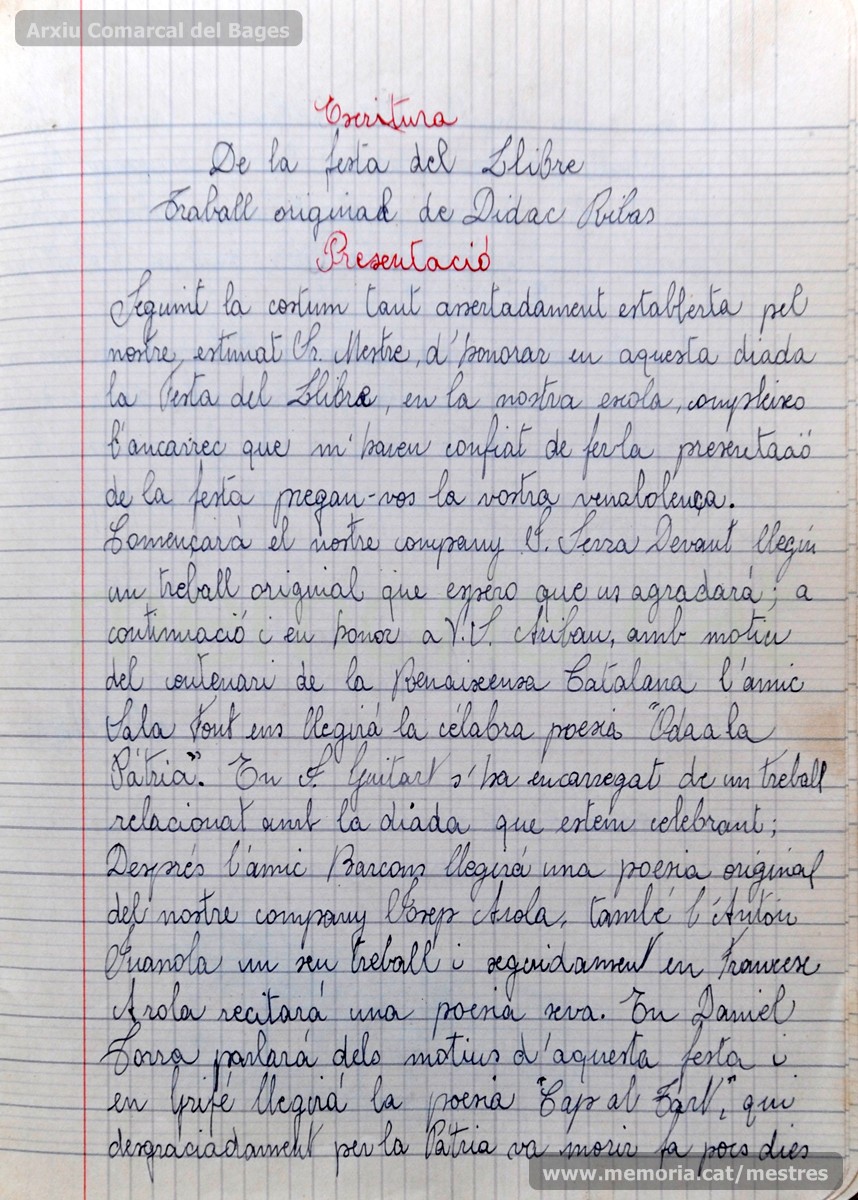 Arxiu Comarcal del Bages
Escritura
De la festa del Llibre
Traball original de Didac Ribas
Presentació
Seguint la costum tant assertadament establerta pel
nostre, estimat Sr. Mestre, d'honorar en aquesta diada
la Festa del Llibre, en la nostra escola, compleixo
l'ancarrec que m'haven confiat de fer la presentació
de la festa pregan-vos la vostra venabolença.
Començarà el nostre company J. Serra Devant llegin
un treball original que espero que us agradará; a
continuació i en honor a V. S. Aribau, amb motiu
del contenari de la Renaixensa Catalana l'amic
Sala Font ens llegirá la célabra poesia "Oda a la
Pàtria". En F. Guitart s'ha encarregat de un treball
relacionat amb la diada que estem celebrant;
Després l'ámic Barcons llegirá una poesia original
del nostre company Josep Arola, també l'Anton
Guanola un seu treball i seguidament en Francesc
Arola recitará una poesia seva. En Daniel
Torra parlará dels mótius d'aquesta festa i
en Grifé llegirá la poesia "Cap al Tart", qui
desgraciadament per la Pàtria va morir fa pocs dies
www.memoria.cat/mestres